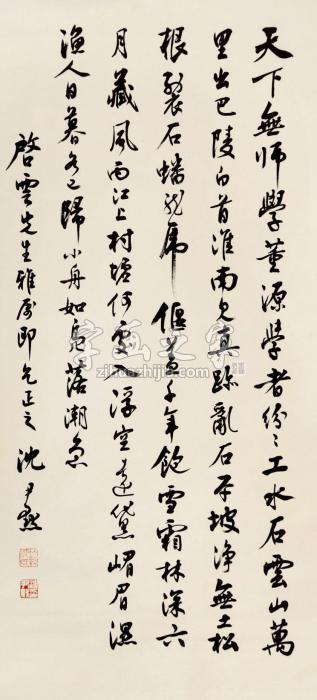 天下無師學董源學者紛〻工水石雲山萬
里出巴陵白首淮南見真跡亂石平坡淨無土松
根裂石蟠龍虎偃蓋千年飽雪霜林深六
月藏風雨江上村墟何處人浮空遠黛嵋眉濕
漁人日暮各已歸小舟如鳧落潮急
啓雲先生雅屬即乞正之 沈尹默
字画之家
zihuazhijia.com